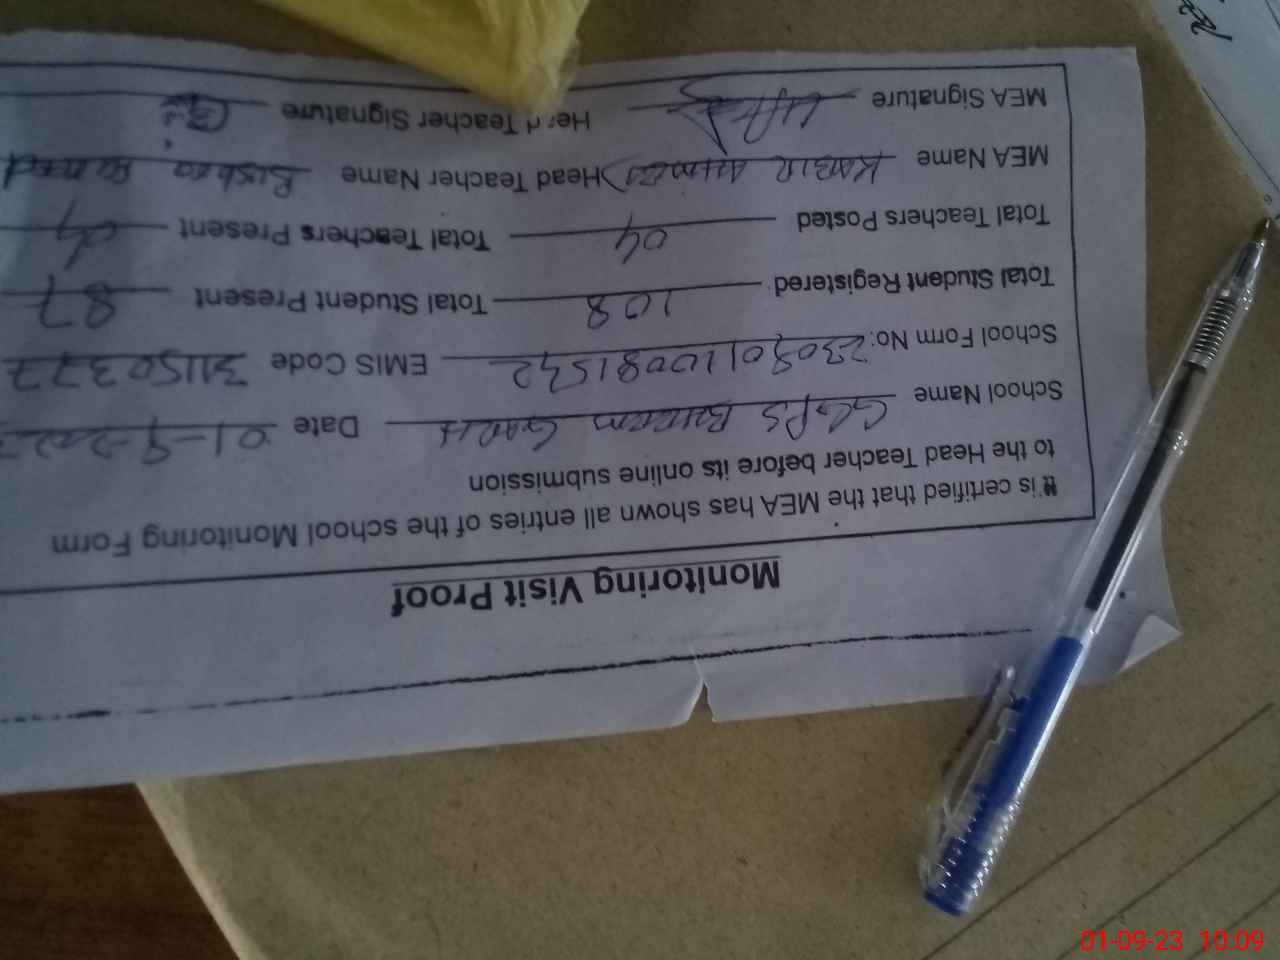 Monitoring Visit Proof
It is certified that the MEA has shown all entries of the school Monitoring Form
to the Head Teacher before its online submission
School Name GGPS Date 01-9-2023
School Form No: EMIS Code 31150377
Total Student Registered 108 Total Student Present 87
Total Teachers Posted 04 Total Teachers Present 04
MEA Name KABIR AHMED Head Teacher Name Bushra
MEA Signature Head Teacher Signature
01-09-23 10:09